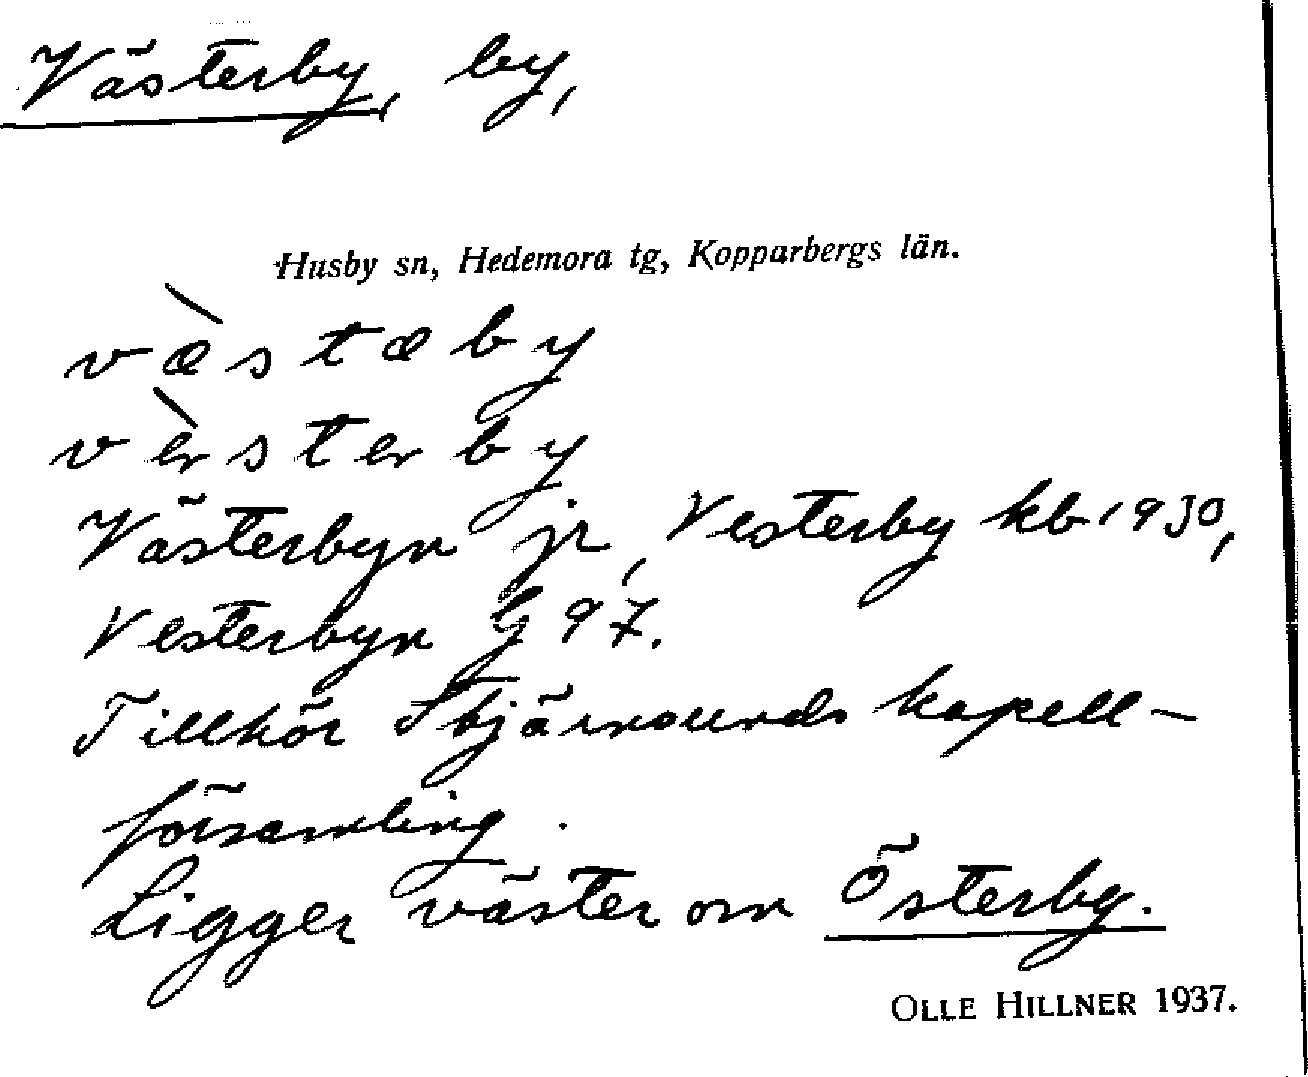 Västerby, by,
Husby sn, Hedemora tg, Kopparbergs län.
væ̀stæby
västerby
Västerbyn jr, Vesterby kb 1930,
Vesterbyn G 97.
Tillhör Stjärnsunds kapell-
församling.
Ligger väster om Österby.
OLLE HILLNER 1937.